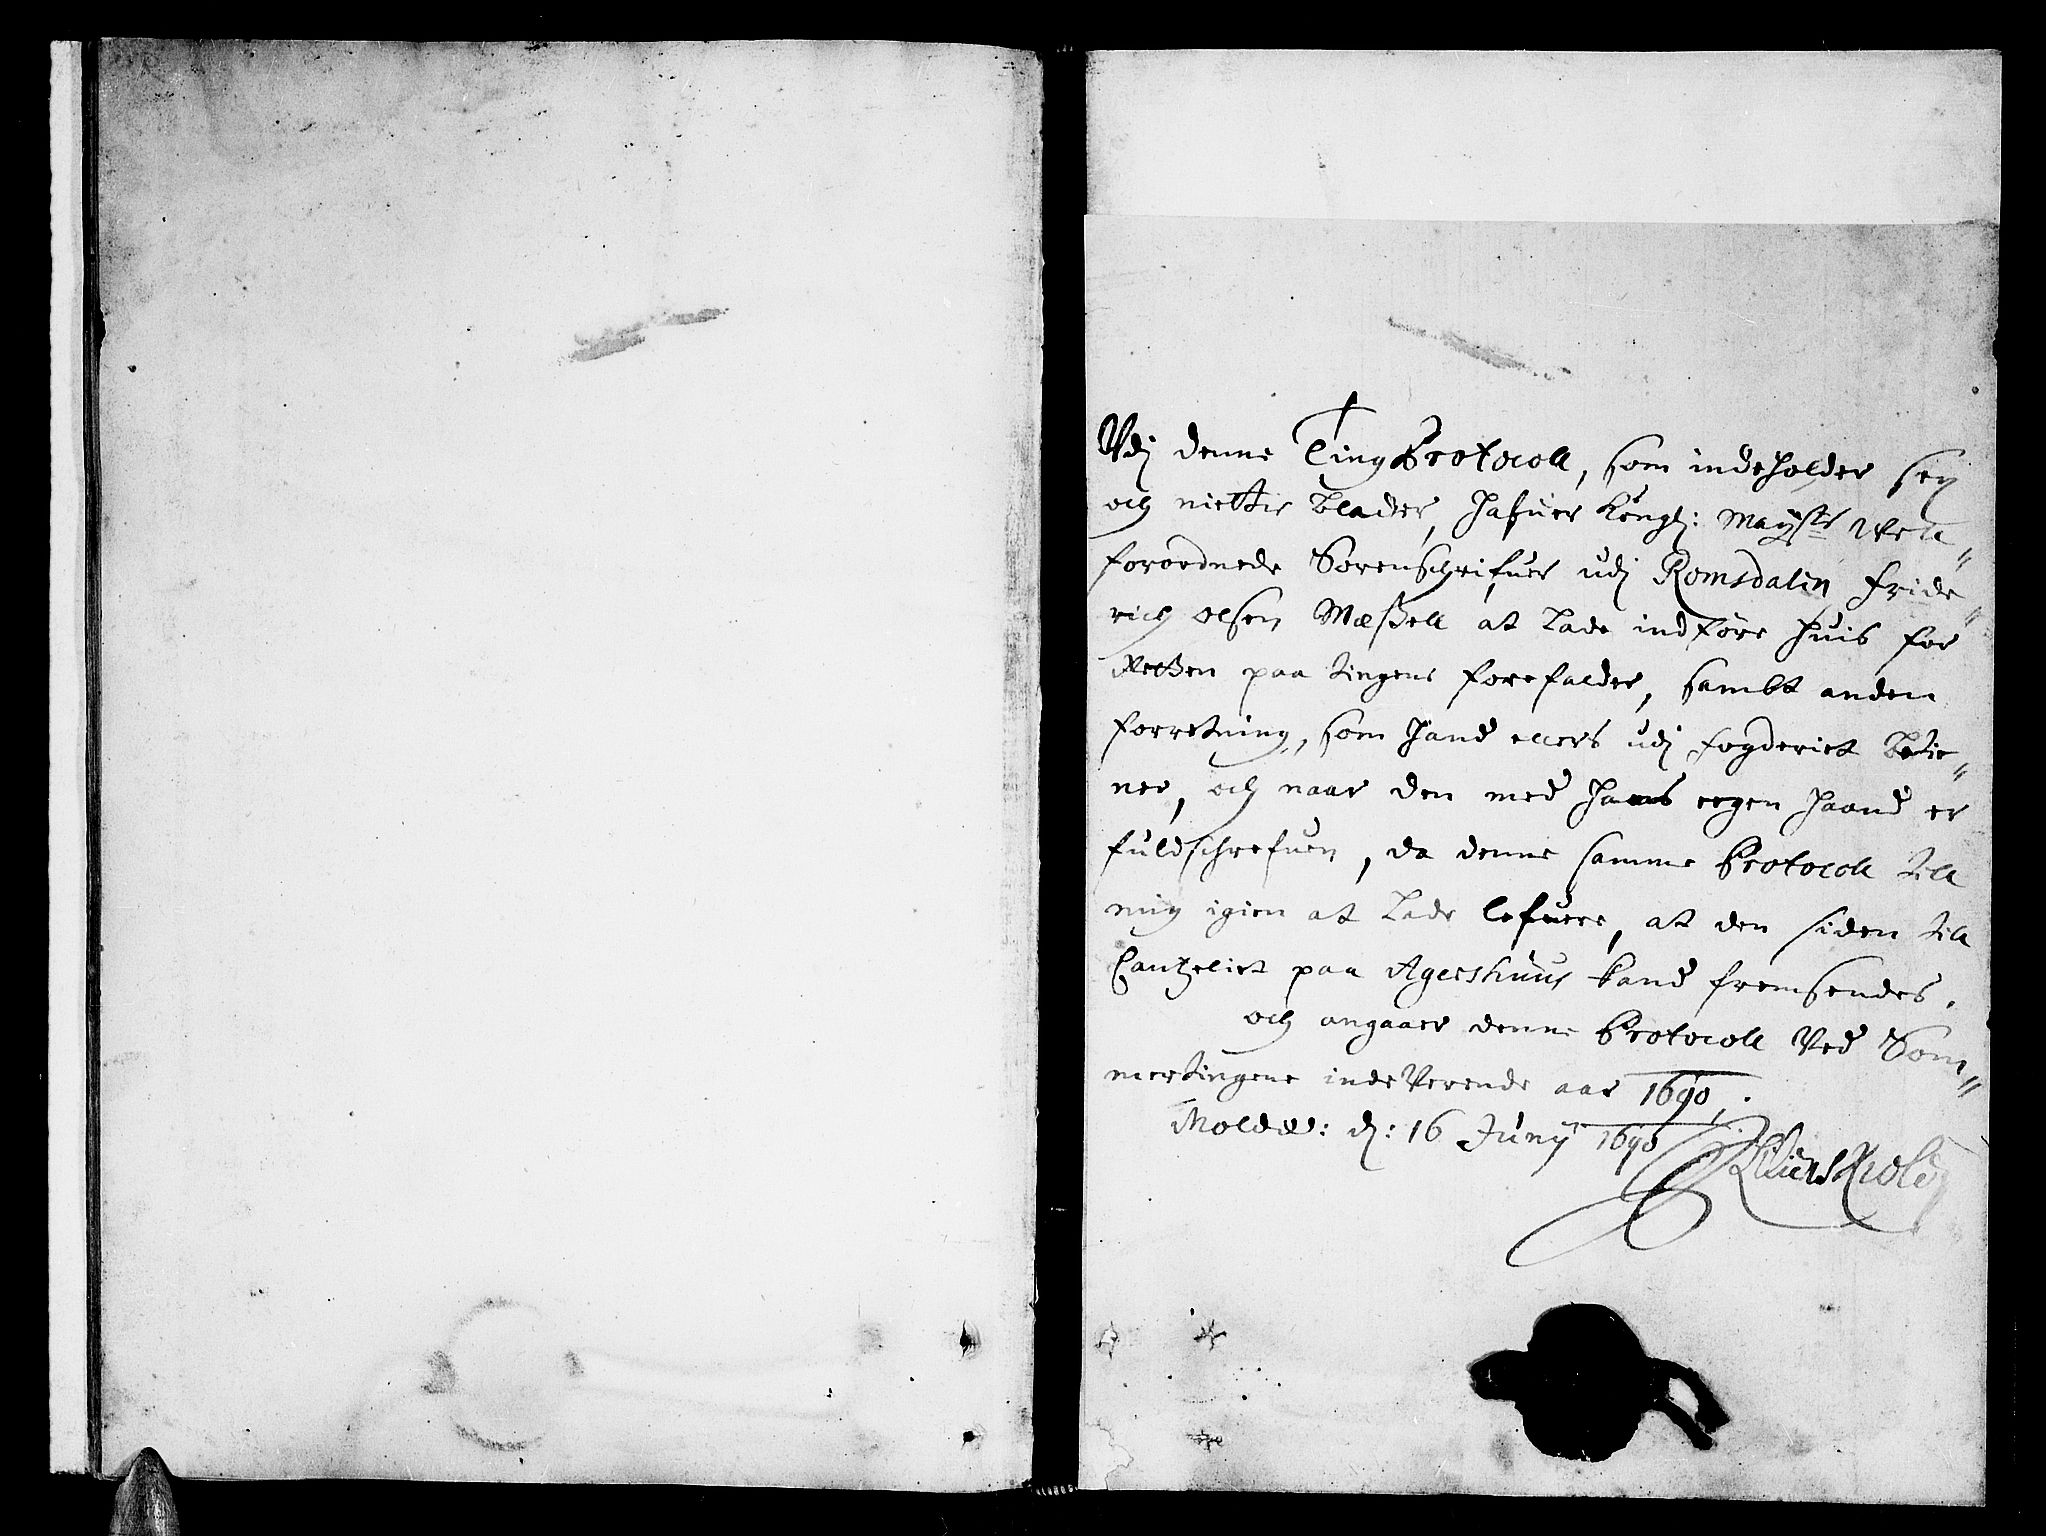 Vdj denne Ting Protocoll, som indeholder sex
och niettie blader, hafuer Kongl: Mayst: Well¨
forordnede Sorenschrifuer udj Romsdalen Fride¨
rich Olsen Weßell at lade indføre huis for
Retten paa tingene forefalder, sambt anden
forretning, som hand ellers udj fogderiet betie¨
ner, och naar den med hans eegen haand er
fuldschrefuen, da denne samme Protocoll till
mig igien at lade lefuere, at den siden till
Cantzeliet paa Agershuus kand fremsendes.
och angaaer denne Protocoll Ved Som¨
mertingene inde Verende aar 1690,.
Molde: d: 16 Junij 1690